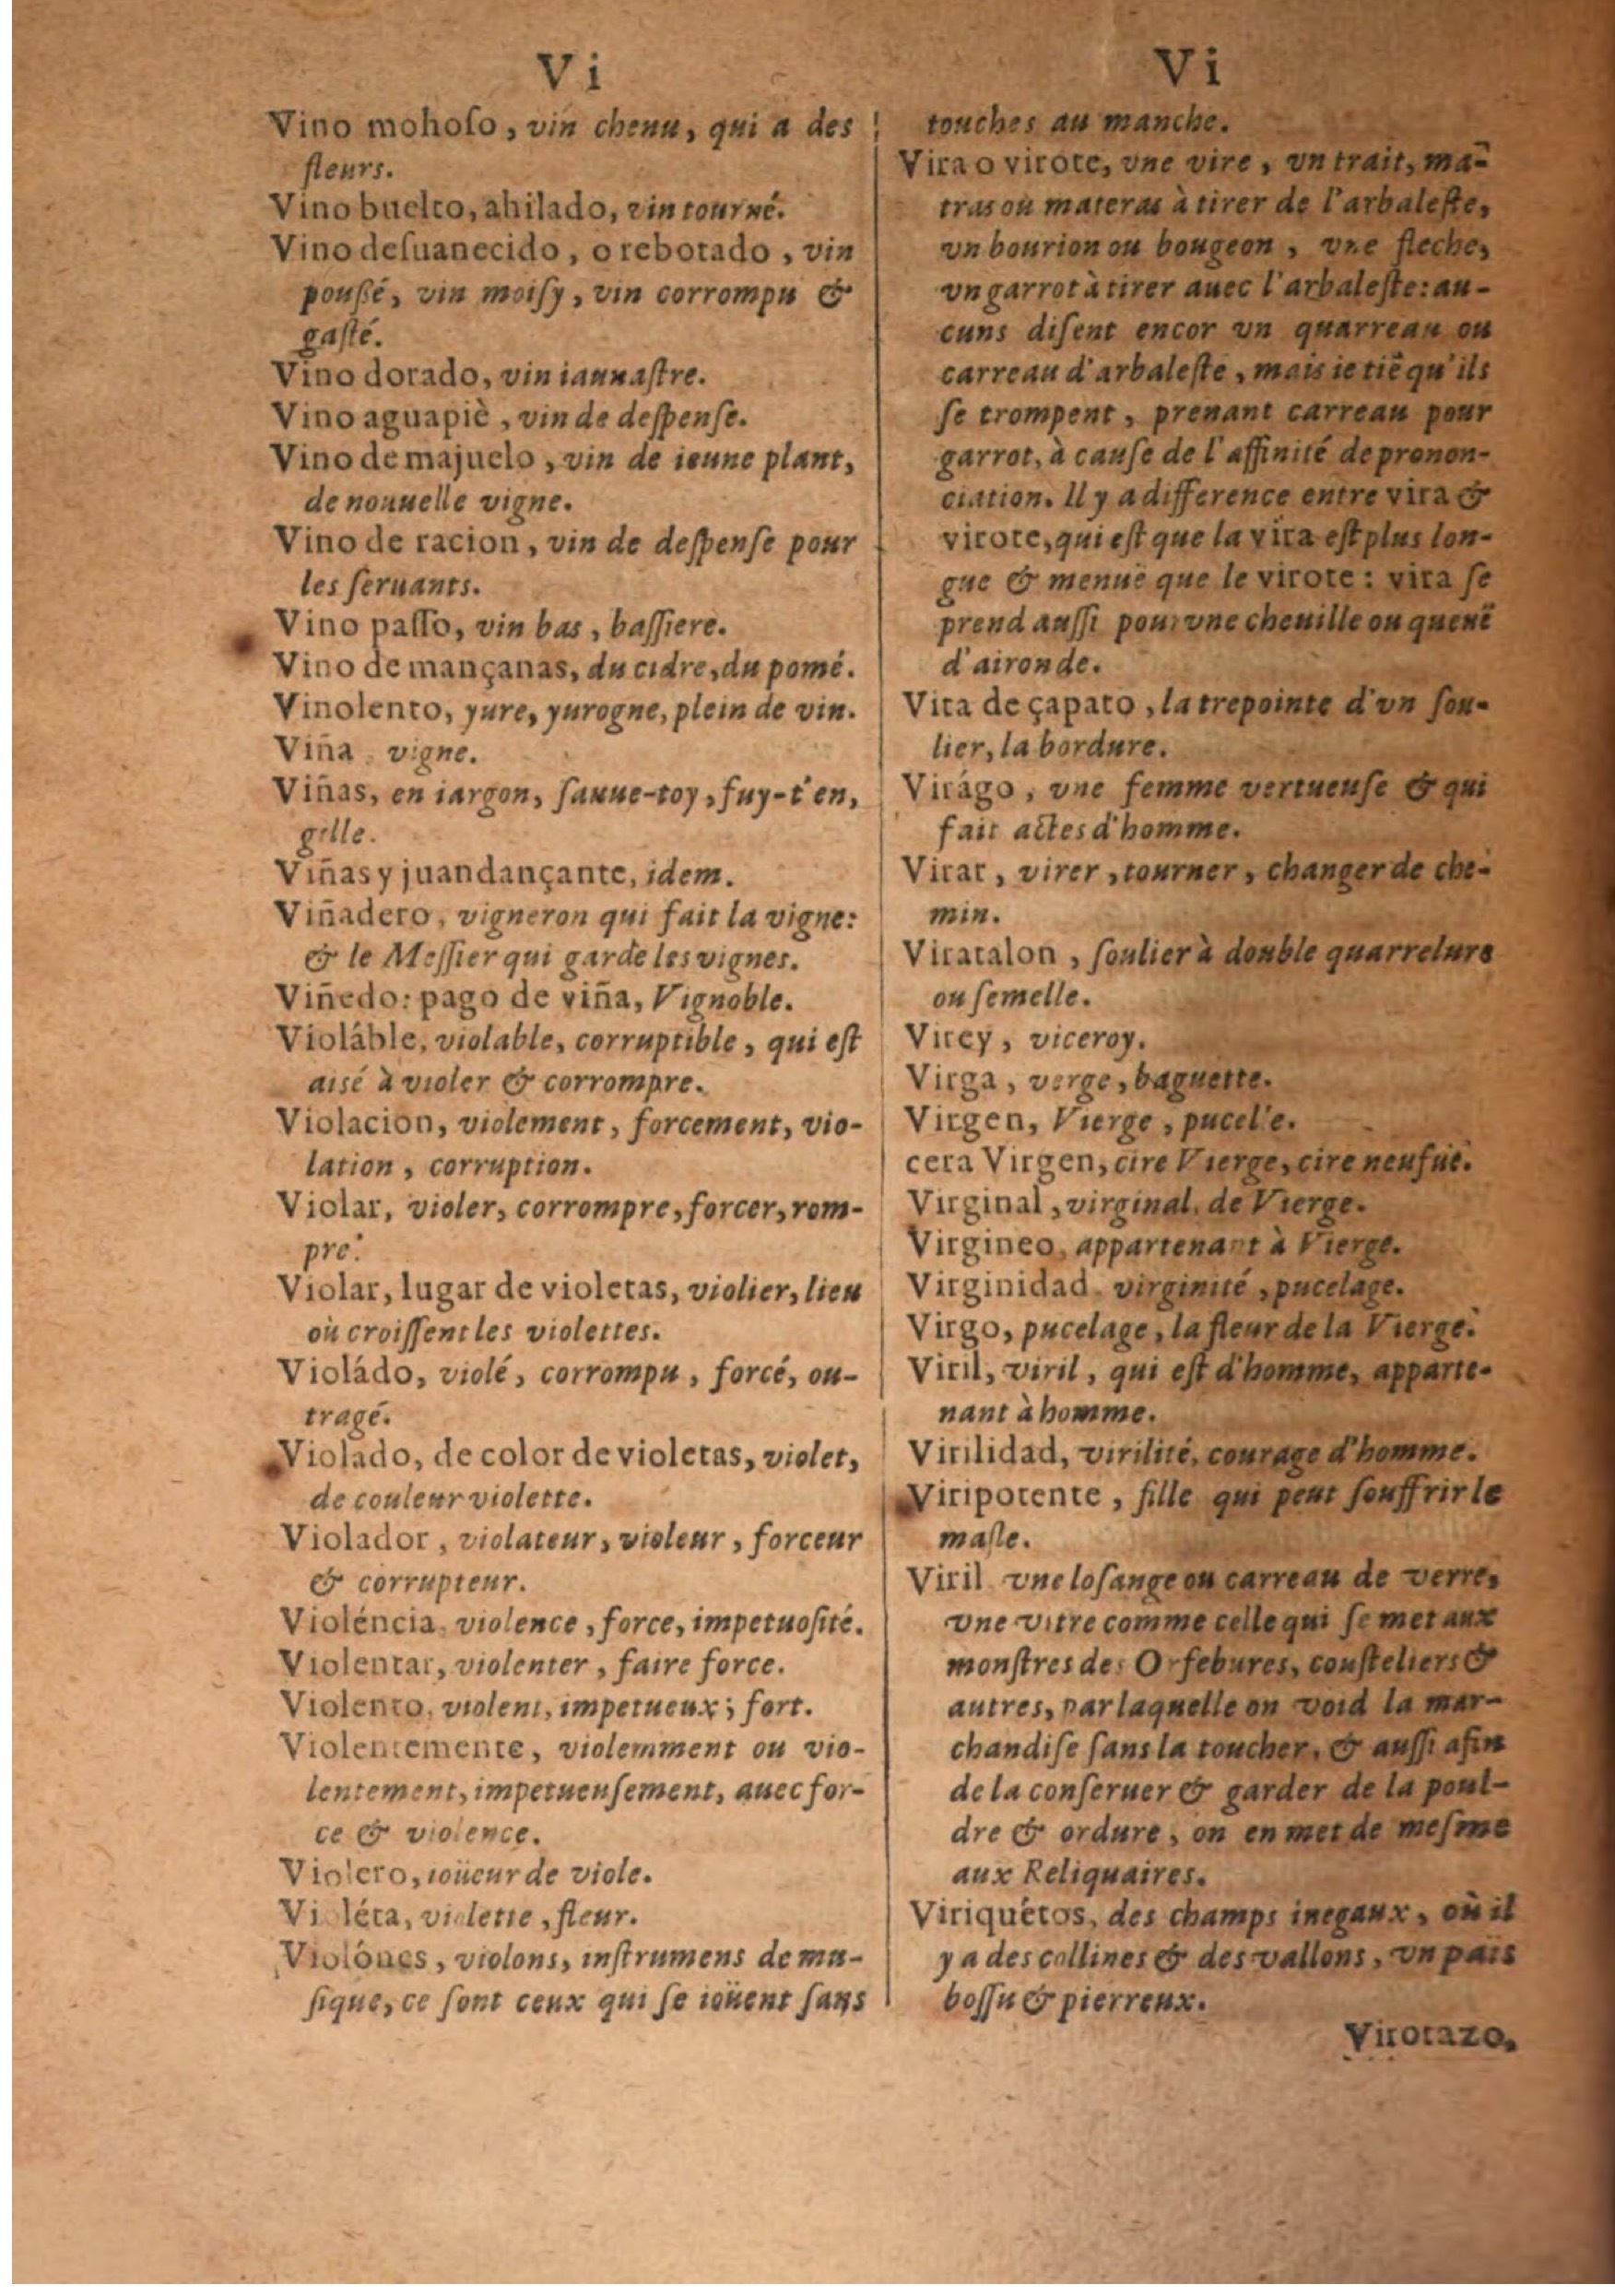 Vi
Vino mohoſo, vin chenu, qui a des
fleurs.
Vino buelto, ahilado, vin tourné.
Vino deſuanecido, o rebotado, vin
poußé, vin moiſy, vin corrompu &
gaſté.
Vino dorado, vin iaunaſtre.
Vino aguapiè, vin de deſpenſe.
Vino de majuelo, vin de ieune plant,
de nouuelle vigne.
Vino de racion, vin de deſpenſe pour
les ſeruants.
Vino paſſo, vin bas, baſſiere.
Vino de mançanas, du cidre, du pomé.
Vinolento, yure, yurogne, plein de vin.
Viña, vigne.
Viñas, en iargon, ſauue-toy, fuy-t'en,
gille.
Viñas y juandançante, idem.
Viñadero, vigneron qui fait la vigne:
& le Meſſier qui garde les vignes.
Viñedo: pago de viña, Vignoble.
Violáble, violable, corruptible, qui eſt
aisé à violer & corrompre.
Violacion, violement, forcement, vio-
lation, corruption.
Violar, violer, corrompre, forcer, rom-
pre.
Violar, lugar de violetas, violier, lieu
où croiſſent les violettes.
Violádo, violé, corrompu, forcé, ou-
tragé.
Violado, de color de violetas, violet,
de couleur violette.
Violador, violateur, violeur, forceur
& corrupteur.
Violéncia, violence, force, impetuoſité.
Violentar, violenter, faire force.
Violento, violent, impetueux; fort.
Violentemente, violemment ou vio-
lentement, impetueuſement, auec for-
ce & violence.
Violero, ioüeur de viole.
Violéta, violette, fleur.
Violónes, violons, inſtrumens de mu-
ſique, ce ſont ceux qui ſe ioüent ſans
Vi
touches au manche.
Vira o virote, vne vire, vn trait, ma-
tras ou materas à tirer de l'arbaleſte,
vn bourion ou bougeon, vne fleche,
vn garrot à tirer auec l'arbaleſte: au-
cuns diſent encor vn quarreau ou
carreau d'arbaleſte, mais ie tiē qu'ils
ſe trompent, prenant carreau pour
garrot, à cauſe de l'affinité de pronon-
ciation. Il y a difference entre vira &
virote, qui eſt que la vira eſt plus lon-
gue & menuë que le virote: vira ſe
prend auſſi pour vne cheuille ou queuë
d'aironde.
Vira de çapato, la trepointe d'vn ſou-
lier, la bordure.
Virágo, vne femme vertueuſe & qui
fait actes d'homme.
Virar, virer, tourner, changer de che-
min.
Viratalon, ſoulier à double quarrelure
ou ſemelle.
Virey, viceroy.
Virga, verge, baguette.
Virgen, Vierge, pucelle.
cera Virgen, cire Vierge, cire neufuë.
Virginal, virginal, de Vierge.
Virgineo, appartenant à Vierge.
Virginidad, virginité, pucelage.
Virgo, pucelage, la fleur de la Vierge.
Viril, viril, qui eſt d'homme, apparte-
nant à homme.
Virilidad, virilité, courage d'homme.
Viripotente, fille qui peut ſouffrir le
maſle.
Viril vne loſange ou carreau de verre,
vne vitre comme celle qui ſe met aux
monſtres des Orfebures, couſteliers &
autres, par laquelle on void la mar-
chandiſe ſans la toucher, & auſſi afin
de la conſeruer & garder de la poul-
dre & ordure, on en met de meſme
aux Reliquaires.
Viriquétos, des champs inegaux, où il
y a des collines & des vallons, vn païs
boſſu & pierreux.
Virotazo,